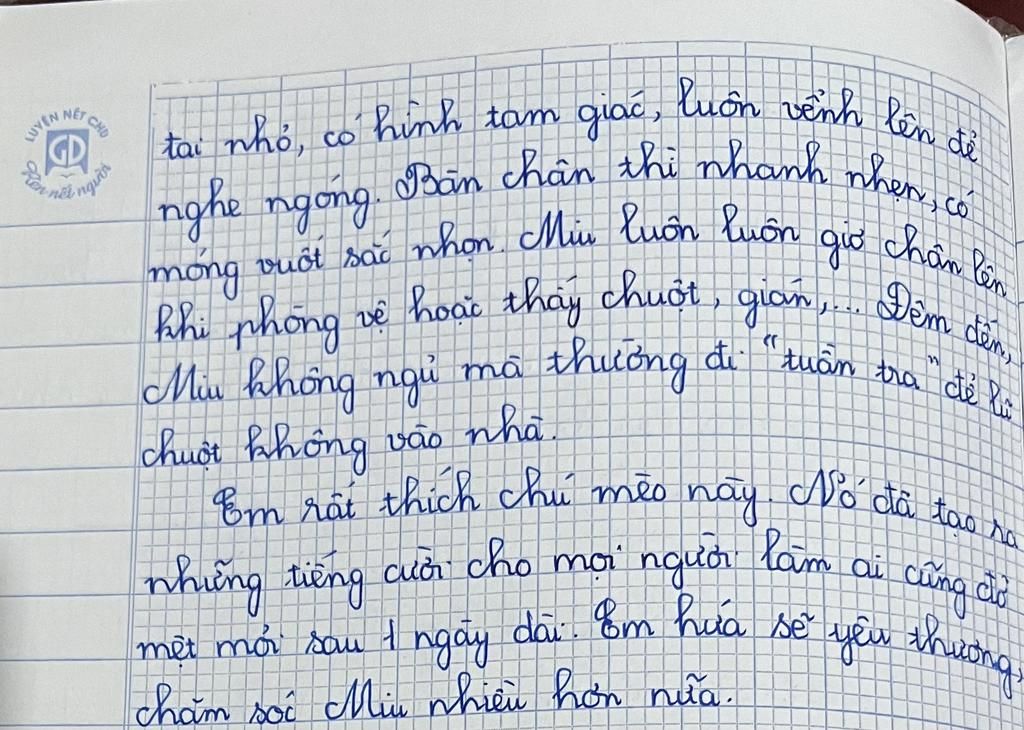 LUYỆN NÉT CHỮ
GD
Rèn nết người
tai nhỏ, có hình tam giác, luôn vểnh lên để
nghe ngóng. Bàn chân thì nhanh nhẹn, có
móng vuốt sắc nhọn. Miu luôn luôn giơ chân lên
khi phòng vệ hoặc thấy chuột, gián,... Đêm đến,
Miu không ngủ mà thường đi “tuần tra” để lũ
chuột không vào nhà.
Em rất thích chú mèo này. Nó đã tạo ra
những tiếng cười cho mọi người làm ai cũng đỡ
mệt mỏi sau 1 ngày dài. Em hứa sẽ yêu thương,
chăm sóc Miu nhiều hơn nữa.